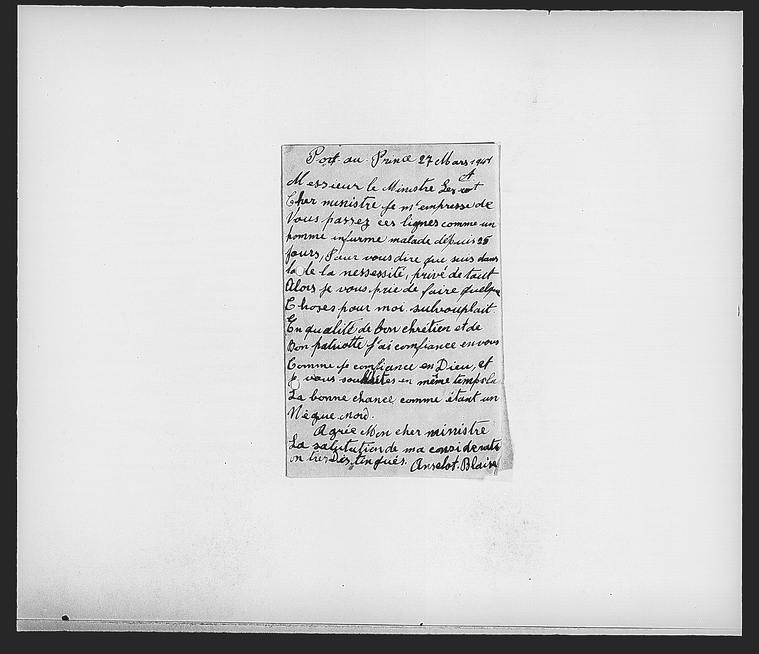 Port-au-Prince 27 Mars 1941
Messieur le Ministre Lescot
Cher ministre je m'empresse de
Vous passez ces lignes comme un
homme infurme malade depuis 25
Jours, Pour vous dire que suis dans
la de la nessessité, privé de tout
Alors je vous prie de faire quelque
Choses pour moi silvouplait
En qualité de bon chrétien et de
Bon patriotte j'ai comfiance en vous
Comme je comfiance en Dieu, et
je vous souhaites en même temps la
La bonne chance comme étant un
Nègue nord.
Agrée Mon cher ministre
La salutution de ma considerati
on tres Distingués. Anselot Blaise